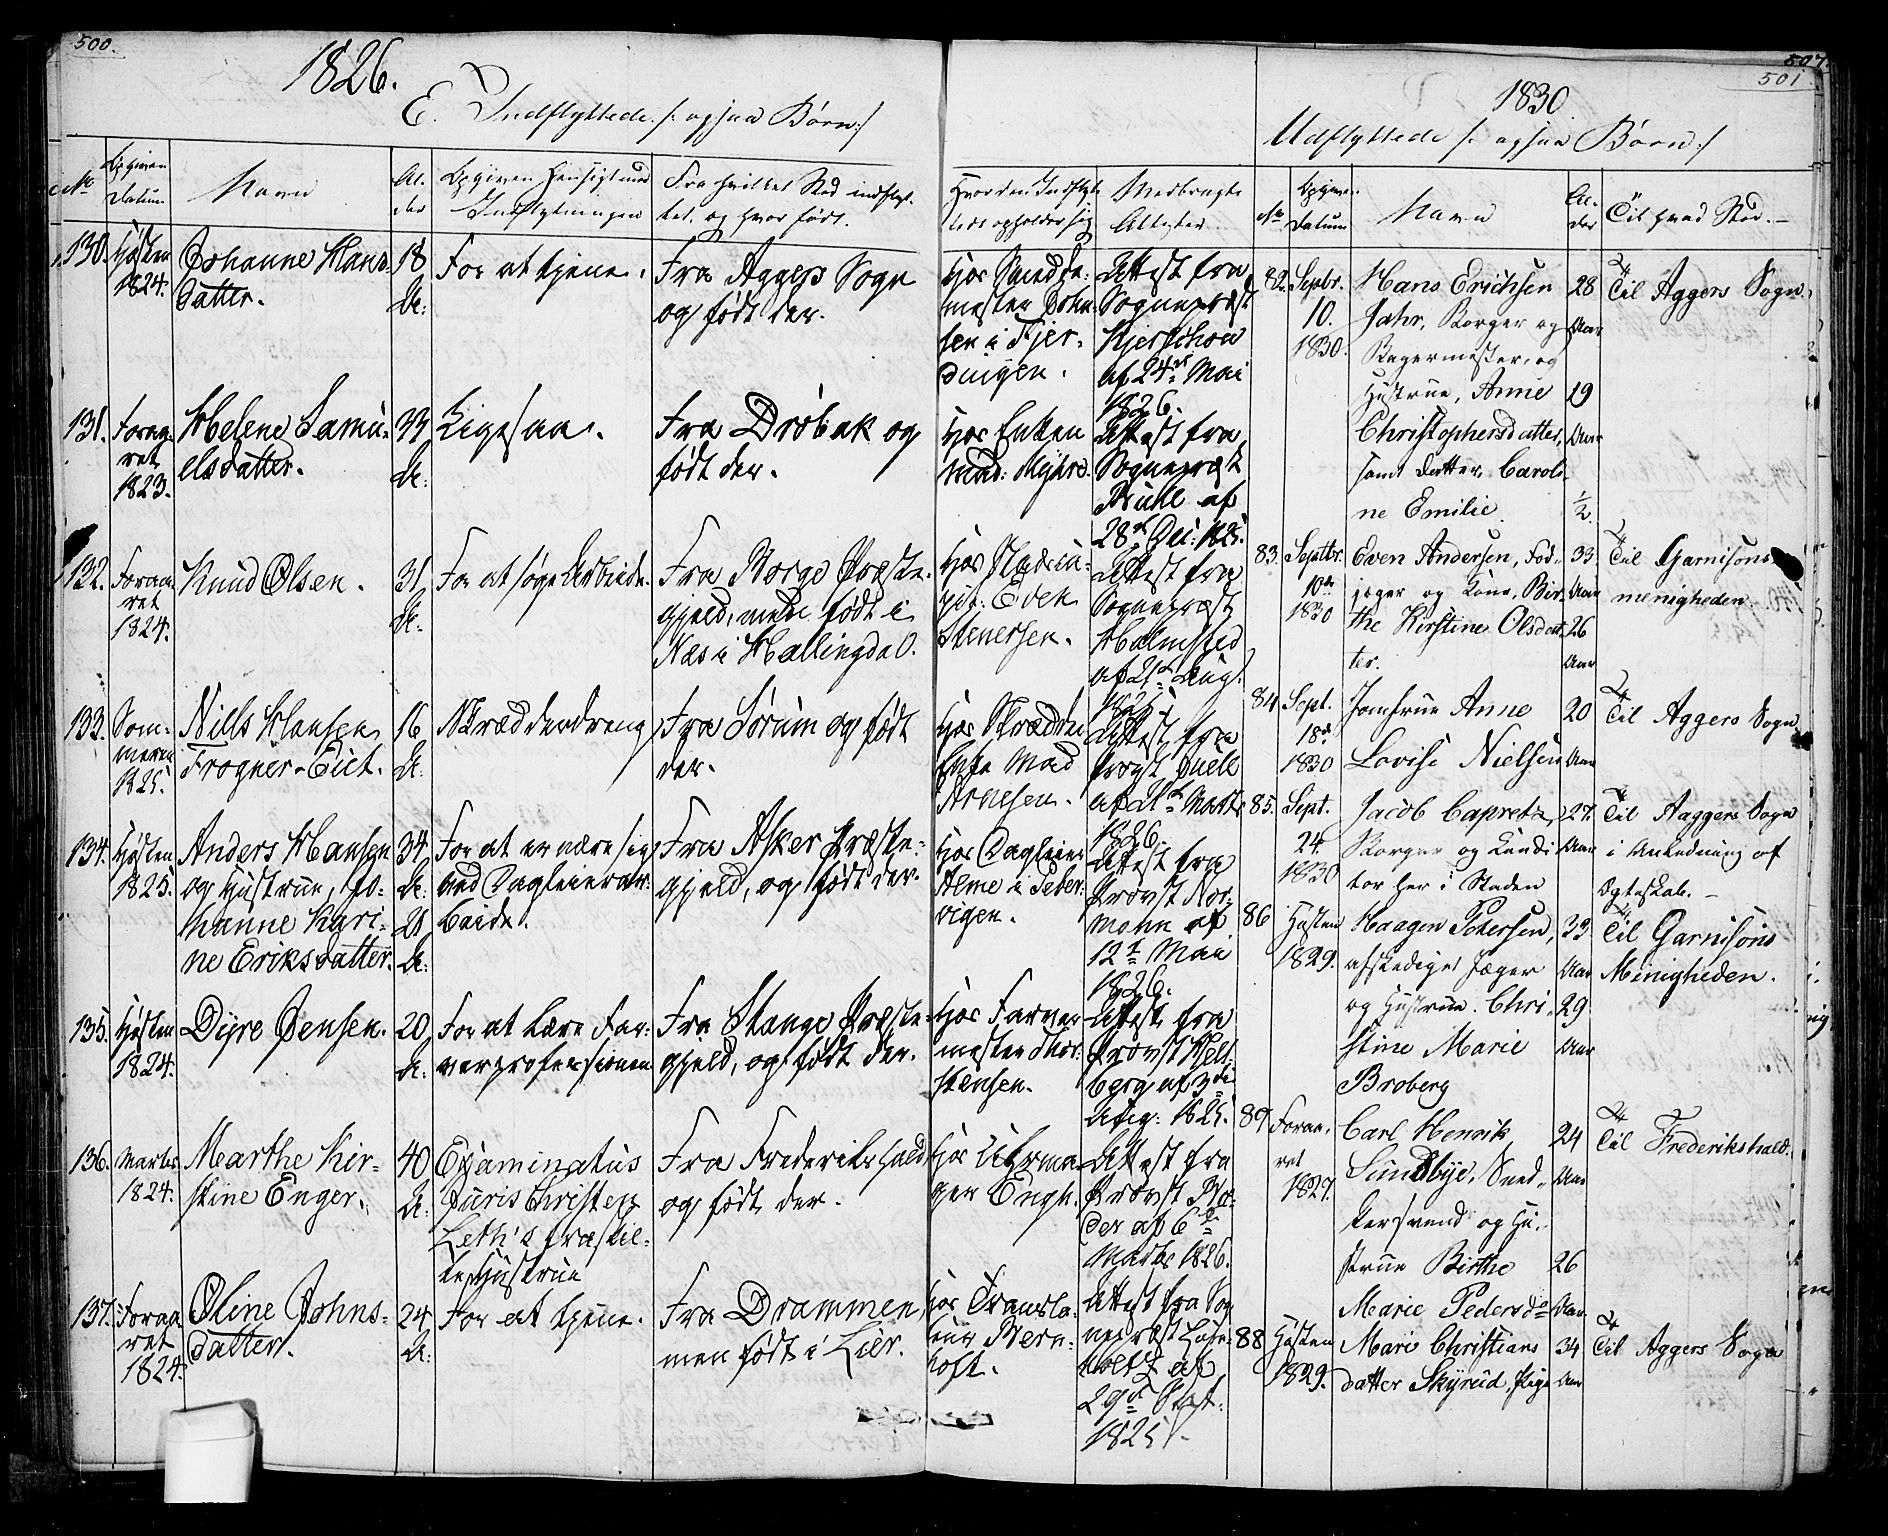 500.
1826.
E. Indflyttede /: ogsaa Børn :/
No
Opgiven Datum
Navn
Alder
Opgiven Hensigt med Indflytningen
Fra hvilket Sted indflyttet, og hvor født.
Hvor den Indflyttede opholder sig
Medbragte Attester
130.
Høsten 1824.
Johanne Hansdatter.
18 A:
For at tjene.
Fra Aggers Sogn og født der.
hos Smedemester Johnsen i Fjerdingen.
Attest fra Sognepræst Kjerschow af 24de Mai 1826.
131.
Foraaret 1823.
Helene Samuelsdatter.
33 A:
Ligesaa.
Fra Drøbak og født der.
hos Enken Mad: Myhre
Attest fra Sognepræst af 28de Dec: 1825.
132.
Foraaret 1824.
Knud Olsen.
31 A:
For at søge Arbeide.
Fra Borge Præstegjeld, men født i Næs i Hallingdal.
hos Even Stenersen.
Attest fra Sognepræst Halmsted af Aug: 1825.
133.
Sommeren 1825.
Niells Hansen Frogner-Eiet.
16 A:
Skrædderdreng
Fra Sørum og født der.
hos Skrædder Enke Mad Arnesen.
Attest fra Provst Juell af Marts 1826.
134.
Høsten 1825.
Anders Hansen og Hustrue, Johanne Karine Eriksdatter.
34 A:
21 A:
For at ernære sig ved Dagleierarbeide.
Fra Asker Præstegjeld, og født der.
hos Dagleier Alme i Pebervigen.
Attest fra Provst Normann af 12te Mai 1826.
135.
Høsten 1824.
Dyre Jensen.
20 A:
For at lære Farverprofessionen
Fra Stange Præstegjeld, og født der.
hos Farvermester Thorstensen.
Attest fra Provst Heltberg af 3die Aug: 1825.
136.
Marts 1824.
Marthe Kirstine Enger.
40 A:
Examinatus Juris Christen Leth's fraskilte Hustrue
Fra Frederikshald og født der.
hos Uhrmager Engh.
Attest fra Provst af 6te Marts 1826.
137.
Foraaret 1824.
Oline Johnsdatter.
24 A:
For at tjene.
Fra Drammen, men født i Lier.
hos Translateur Bernhoft.
Attest fra Sognepræst af 29de Sept: 1825.
507.
501
1830
Udflyttede /: ogsaa Børn :/
No
Opgiven Datum
Navn
Alder
Til hvad Sted.
82.
Septbr. 10. 1830.
Hans Erichsen
Jahr, Borger og
Bagermester, og
Hustrue, Anne
Christophersdatter,
samt datter, Caroline Emilie
28 Aar
19 Aar
1/2.
Til Aggers Sogn.
83.
Septbr. 10de 1830
Even Andersen, Fodjæger og Kone, Birthe Kirstine Olsdatter.
33 Aar
26 Aar
Til Garnisonsmenigheden
84
Sept. 18de 1830
Jomfrue Anne Lovise Nielsen
20 Aar
Til Aggers Sogn
85.
Sept. 24 1830
Jacob Capretz, Borger og Konditor her i Staden
27. Aar
Til Aaggers Sogn i Anledning af Egteskab.
86
Høsten 1829.
Haagen Petersen, afskediget Jæger og Hustrue. Christine Marie Broberg
33 Aar
29 Aar
Til Garnisons Menigheden.
87
Foraaret 1827.
Carl Henrik Sundbye, Snedkersvend og Hustrue Birthe Marie Pedersdr
24 Aar
26 Aar
Til Frederikshald.
88
Høsten 1829.
Mari Christiansdatter Skyrud, Pige
34 Aar
Til Aggers Sogn